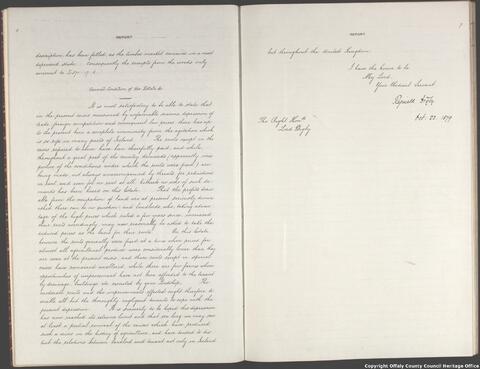 6
REPORT
description has been felled, as the timber market remains in a most
depressed state. Consequently the receipts from the woods only
amount to
General Condition of the Estate &c.
It is most satisfactory to be able to state that
in the present crisis occasioned by unfavorable seasons, depression of
trade, foreign competition and consequent low prices, there has up
to the present been a complete immunity from the agitation which
is so rife in many parts of Ireland. The rents except in the
cases referred to above have been cheerfully paid, and while,
throughout a great part of the country, demands (apparently irres-
pective of the conditions under which the rents were fixed) are
being made, not always unaccompanied by threats for reductions
in rent, and even for no rent at all, hitherto no sort of such de-
mands has been heard on this Estate. That the profits deriv-
able from the occupation of land are at present seriously dimin-
ished there can be no question; and landlords who, taking advan-
tage of the high prices which ruled a few years since, increased
their rents accordingly, may now reasonably be asked to take the
reduced prices as the basis for their rents. On this Estate,
however the rents generally were fixed at a time when prices for
almost all agricultural produce were considerably lower than they
are even at the present crisis, and those rents except in special
cases have remained unaltered, while there are few farms where
opportunities of improvement have not been afforded to the tenant
by drainage, buildings etc executed by your Lordship. The
moderate rents and the improvements effected ought therefore to
enable all but the thoroughly negligent tenants to cope with the
present depression. It is sincerely to be hoped this depression
has now reached its extreme limit and that ere long we may see
at least a partial removal of the causes which have produced
such a crisis in the history of agriculture, and have tended to dis-
turb the relations between landlord and tenant not only in Ireland
7
REPORT
but throughout the United Kingdom.
I have the honor to be
My Lord,
Your Obedient Servant
Reginald Digby
Oct. 23. 1879
The Right Honble
Lord Digby
Copyright Offaly County Council Heritage Office